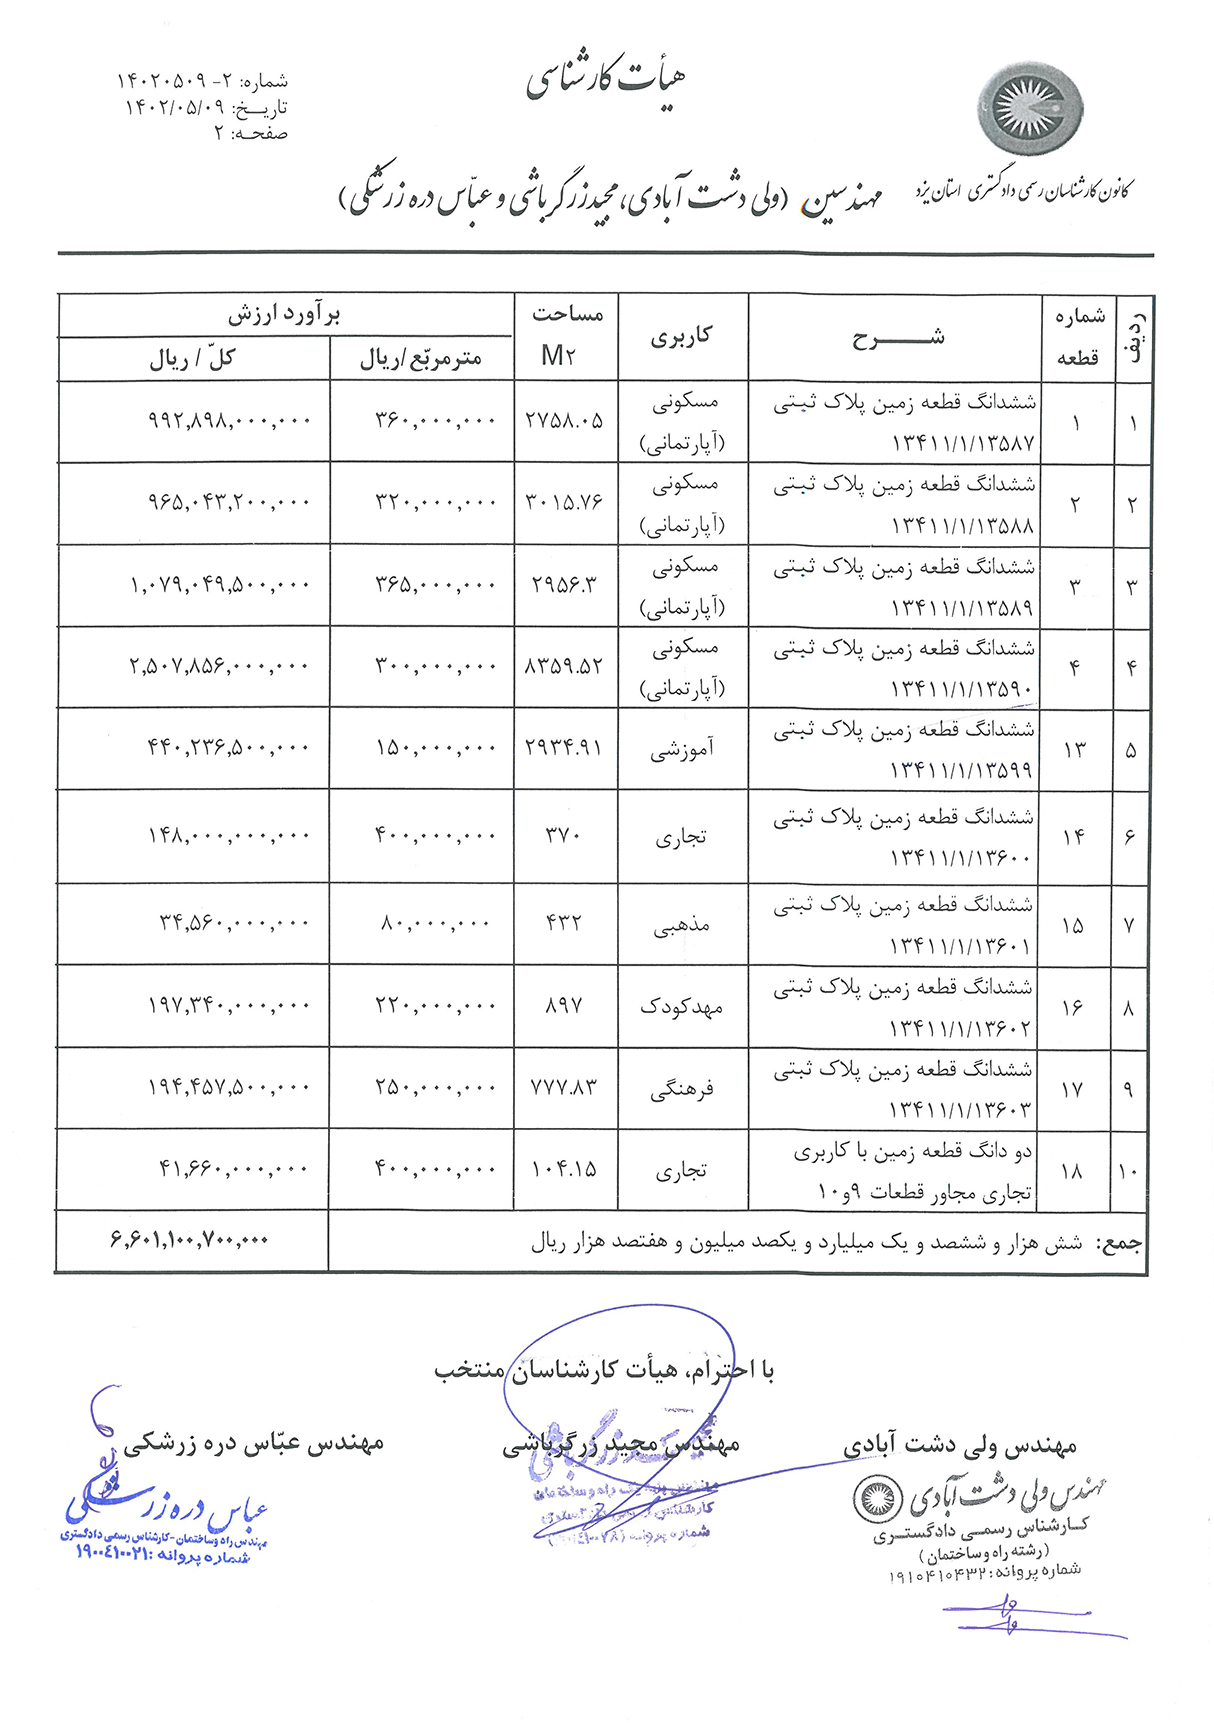 هیأت کارشناسی
شماره: ۲- ۱۴۰۲۰۵۰۹
تاریخ: ۱۴۰۲/۰۵/۰۹
صفحه: ۲
کانون کارشناسان رسمی دادگستری استان یزد
مهندسین (ولی دشت آبادی، مجید زرگرباشی و عبّاس دره زرشکی)
ردیف شماره قطعه شــــرح کاربری مساحت M۲ برآورد ارزش
مترمربّع/ریال کلّ / ریال
۱ ۱ ششدانگ قطعه زمین پلاک ثبتی ۱۳۴۱۱/۱/۱۳۵۸۷ مسکونی (آپارتمانی) ۲۷۵۸.۰۵ ۳۶۰,۰۰۰,۰۰۰ ۹۹۲,۸۹۸,۰۰۰,۰۰۰
۲ ۲ ششدانگ قطعه زمین پلاک ثبتی ۱۳۴۱۱/۱/۱۳۵۸۸ مسکونی (آپارتمانی) ۳۰۱۵.۷۶ ۳۲۰,۰۰۰,۰۰۰ ۹۶۵,۰۴۳,۲۰۰,۰۰۰
۳ ۳ ششدانگ قطعه زمین پلاک ثبتی ۱۳۴۱۱/۱/۱۳۵۸۹ مسکونی (آپارتمانی) ۲۹۵۶.۳ ۳۶۵,۰۰۰,۰۰۰ ۱,۰۷۹,۰۴۹,۵۰۰,۰۰۰
۴ ۴ ششدانگ قطعه زمین پلاک ثبتی ۱۳۴۱۱/۱/۱۳۵۹۰ مسکونی (آپارتمانی) ۸۳۵۹.۵۲ ۳۰۰,۰۰۰,۰۰۰ ۲,۵۰۷,۸۵۶,۰۰۰,۰۰۰
۵ ۱۳ ششدانگ قطعه زمین پلاک ثبتی ۱۳۴۱۱/۱/۱۳۵۹۹ آموزشی ۲۹۳۴.۹۱ ۱۵۰,۰۰۰,۰۰۰ ۴۴۰,۲۳۶,۵۰۰,۰۰۰
۶ ۱۴ ششدانگ قطعه زمین پلاک ثبتی ۱۳۴۱۱/۱/۱۳۶۰۰ تجاری ۳۷۰ ۴۰۰,۰۰۰,۰۰۰ ۱۴۸,۰۰۰,۰۰۰,۰۰۰
۷ ۱۵ ششدانگ قطعه زمین پلاک ثبتی ۱۳۴۱۱/۱/۱۳۶۰۱ مذهبی ۴۳۲ ۸۰,۰۰۰,۰۰۰ ۳۴,۵۶۰,۰۰۰,۰۰۰
۸ ۱۶ ششدانگ قطعه زمین پلاک ثبتی ۱۳۴۱۱/۱/۱۳۶۰۲ مهدکودک ۸۹۷ ۲۲۰,۰۰۰,۰۰۰ ۱۹۷,۳۴۰,۰۰۰,۰۰۰
۹ ۱۷ ششدانگ قطعه زمین پلاک ثبتی ۱۳۴۱۱/۱/۱۳۶۰۳ فرهنگی ۷۷۷.۸۳ ۲۵۰,۰۰۰,۰۰۰ ۱۹۴,۴۵۷,۵۰۰,۰۰۰
۱۰ ۱۸ دو دانگ قطعه زمین با کاربری تجاری مجاور قطعات ۹و۱۰ تجاری ۱۰۴.۱۵ ۴۰۰,۰۰۰,۰۰۰ ۴۱,۶۶۰,۰۰۰,۰۰۰
جمع: شش هزار و ششصد و یک میلیارد و یکصد میلیون و هفتصد هزار ریال ۶,۶۰۱,۱۰۰,۷۰۰,۰۰۰
با احترام، هیأت کارشناسان منتخب
مهندس ولی دشت آبادی مهندس مجید زرگرباشی مهندس عبّاس دره زرشکی
مهندس ولی دشت آبادی
کارشناس رسمی دادگستری
(رشته راه و ساختمان)
شماره پروانه: ۱۹۱۰۴۱۰۴۳۲
عباس دره زرشکی
مهندس راه وساختمان-کارشناس رسمی دادگستری
شماره پروانه: ۱۹۰۰۴۱۰۰۲۱